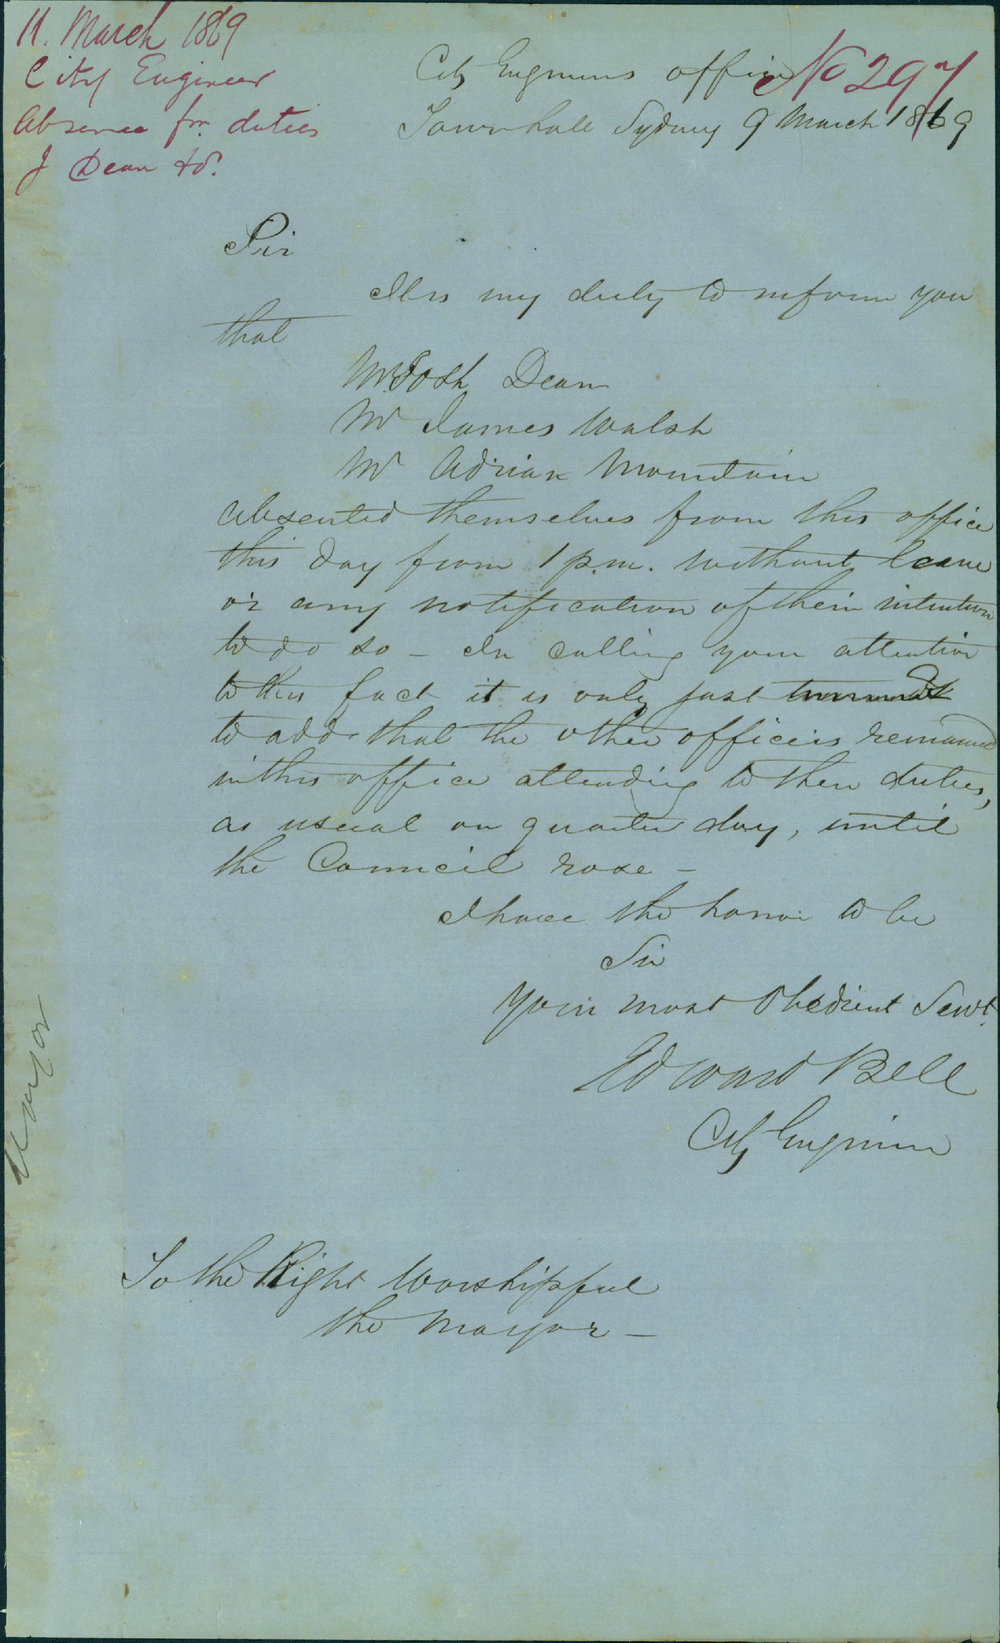 11. March 1869
City Engineer
Absence for duties
J Dean &c.
No 297
City Engineers office
Town hall Sydney 9 March 1869
Sir
It is my duty to inform you
that
Mr Josh Dean
Mr James Walsh
Mr Adrian Mountain
absented themselves from this office
this day from 1 p.m. without leave
or any notification of their intention
to do so – In calling your attention
to this fact it is only just
to add that the other officers remained
in this office attending to their duties,
as usual on quarter day, until
the Council rose –
I have the honor to be
Sir
Your most Obedient Servt.
Edward Bell
City Engineer
To the Right Worshipful
the Mayor –
Mayor